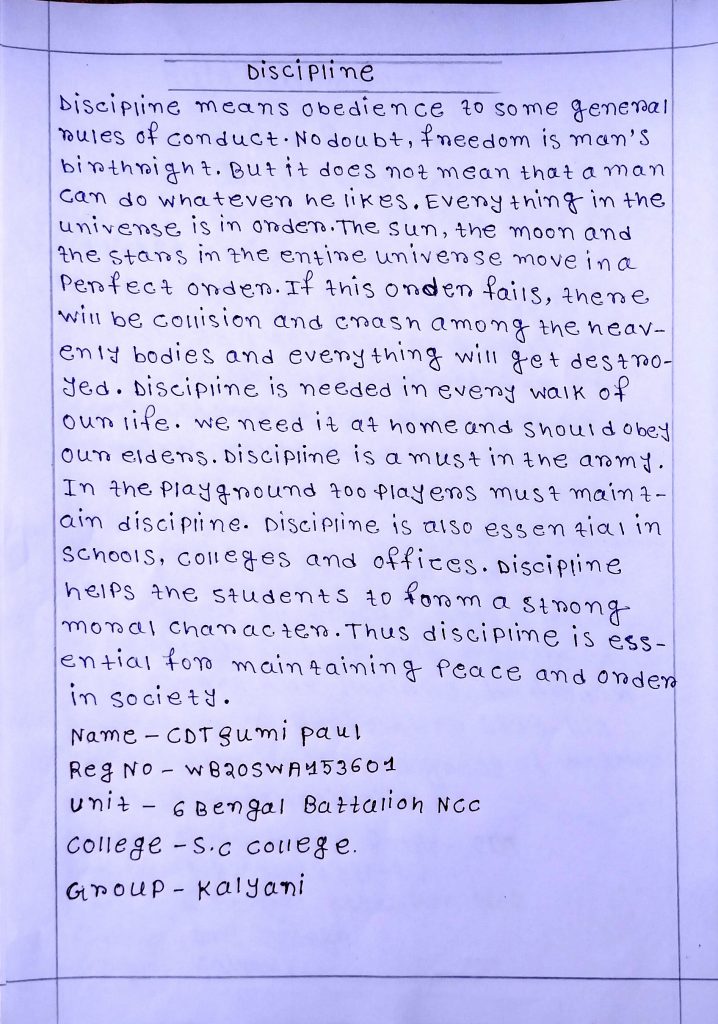 Discipline
Discipline means obedience to some general
rules of conduct. No doubt, freedom is man's
birthright. But it does not mean that a man
can do whatever he likes. Everything in the
universe is in order. The sun, the moon and
the stars in the entire universe move in a
Perfect order. If this order fails, there
will be collision and crash among the heav-
enly bodies and everything will get destro-
yed. Discipline is needed in every walk of
our life. we need it at home and should obey
our elders. Discipline is a must in the army.
In the Playground too Players must maint-
ain discipline. Discipline is also essential in
schools, colleges and offices. Discipline
helps the students to form a strong
moral character. Thus discipline is ess-
ential for maintaining peace and order
in society.
Name - CDT Sumi paul
Reg No - WB20SWA153601
unit - 6 Bengal Battalion NCC
College - S.C College.
Group - Kalyani